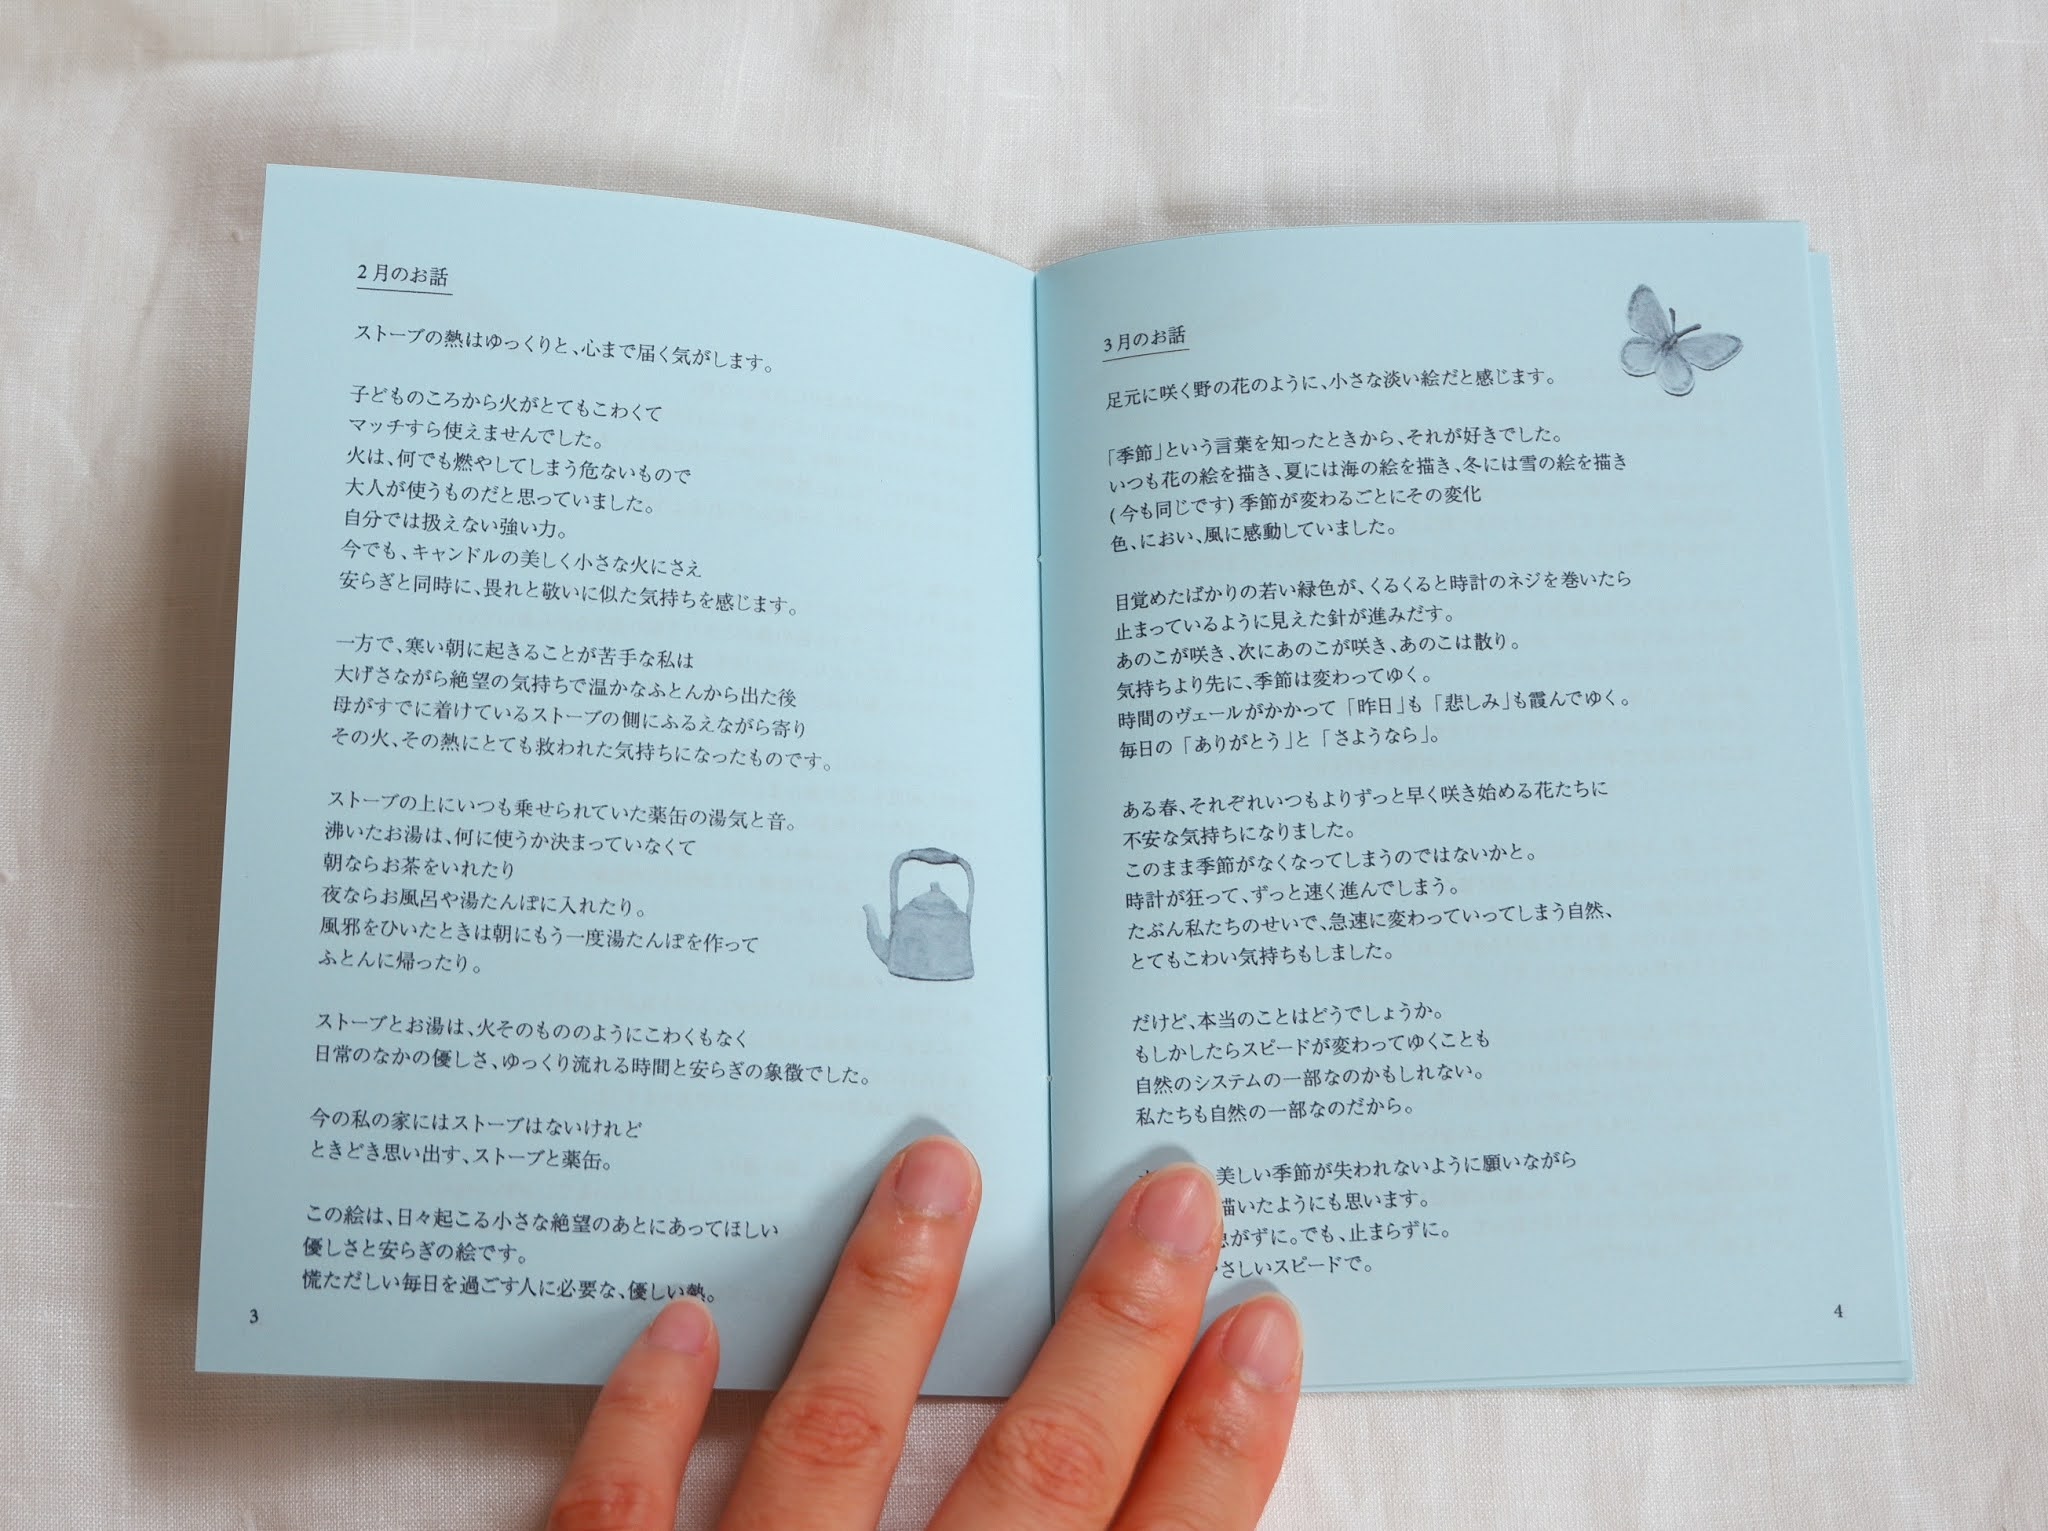 2月のお話
ストーブの熱はゆっくりと、心まで届く気がします。
子どものころから火がとてもこわくて
マッチすら使えませんでした。
火は、何でも燃やしてしまう危ないもので
大人が使うものだと思っていました。
自分では扱えない強い力。
今でも、キャンドルの美しく小さな火にさえ
安らぎと同時に、畏れと敬いに似た気持ちを感じます。
一方で、寒い朝に起きることが苦手な私は
大げさながら絶望の気持ちで温かなふとんから出た後
母がすでに着けているストーブの側にふるえながら寄り
その火、その熱にとても救われた気持ちになったものです。
ストーブの上にいつも乗せられていた薬缶の湯気と音。
沸いたお湯は、何に使うか決まっていなくて
朝ならお茶をいれたり
夜ならお風呂や湯たんぽに入れたり。
風邪をひいたときは朝にもう一度湯たんぽを作って
ふとんに帰ったり。
ストーブとお湯は、火そのもののようにこわくもなく
日常のなかの優しさ、ゆっくり流れる時間と安らぎの象徴でした。
今の私の家にはストーブはないけれど
ときどき思い出す、ストーブと薬缶。
この絵は、日々起こる小さな絶望のあとにあってほしい
優しさと安らぎの絵です。
慌ただしい毎日を過ごす人に必要な、優しい熱。
3
3月のお話
足元に咲く野の花のように、小さな淡い絵だと感じます。
「季節」という言葉を知ったときから、それが好きでした。
いつも花の絵を描き、夏には海の絵を描き、冬には雪の絵を描き
(今も同じです) 季節が変わるごとにその変化
色、におい、風に感動していました。
目覚めたばかりの若い緑色が、くるくると時計のネジを巻いたら
止まっているように見えた針が進みだす。
あのこが咲き、次にあのこが咲き、あのこは散り。
気持ちより先に、季節は変わってゆく。
時間のヴェールがかかって「昨日」も「悲しみ」も霞んでゆく。
毎日の「ありがとう」と「さようなら」。
ある春、それぞれいつもよりずっと早く咲き始める花たちに
不安な気持ちになりました。
このまま季節がなくなってしまうのではないかと。
時計が狂って、ずっと速く進んでしまう。
たぶん私たちのせいで、急速に変わっていってしまう自然、
とてもこわい気持ちもしました。
だけど、本当のことはどうでしょうか。
もしかしたらスピードが変わってゆくことも
自然のシステムの一部なのかもしれない。
私たちも自然の一部なのだから。
美しい季節が失われないように願いながら
描いたようにも思います。
がずに。でも、止まらずに。
さしいスピードで。
4